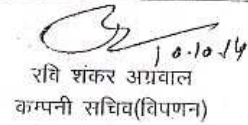 10.10.14
रवि शंकर अग्रवाल
कम्पनी सचिव(विपणन)